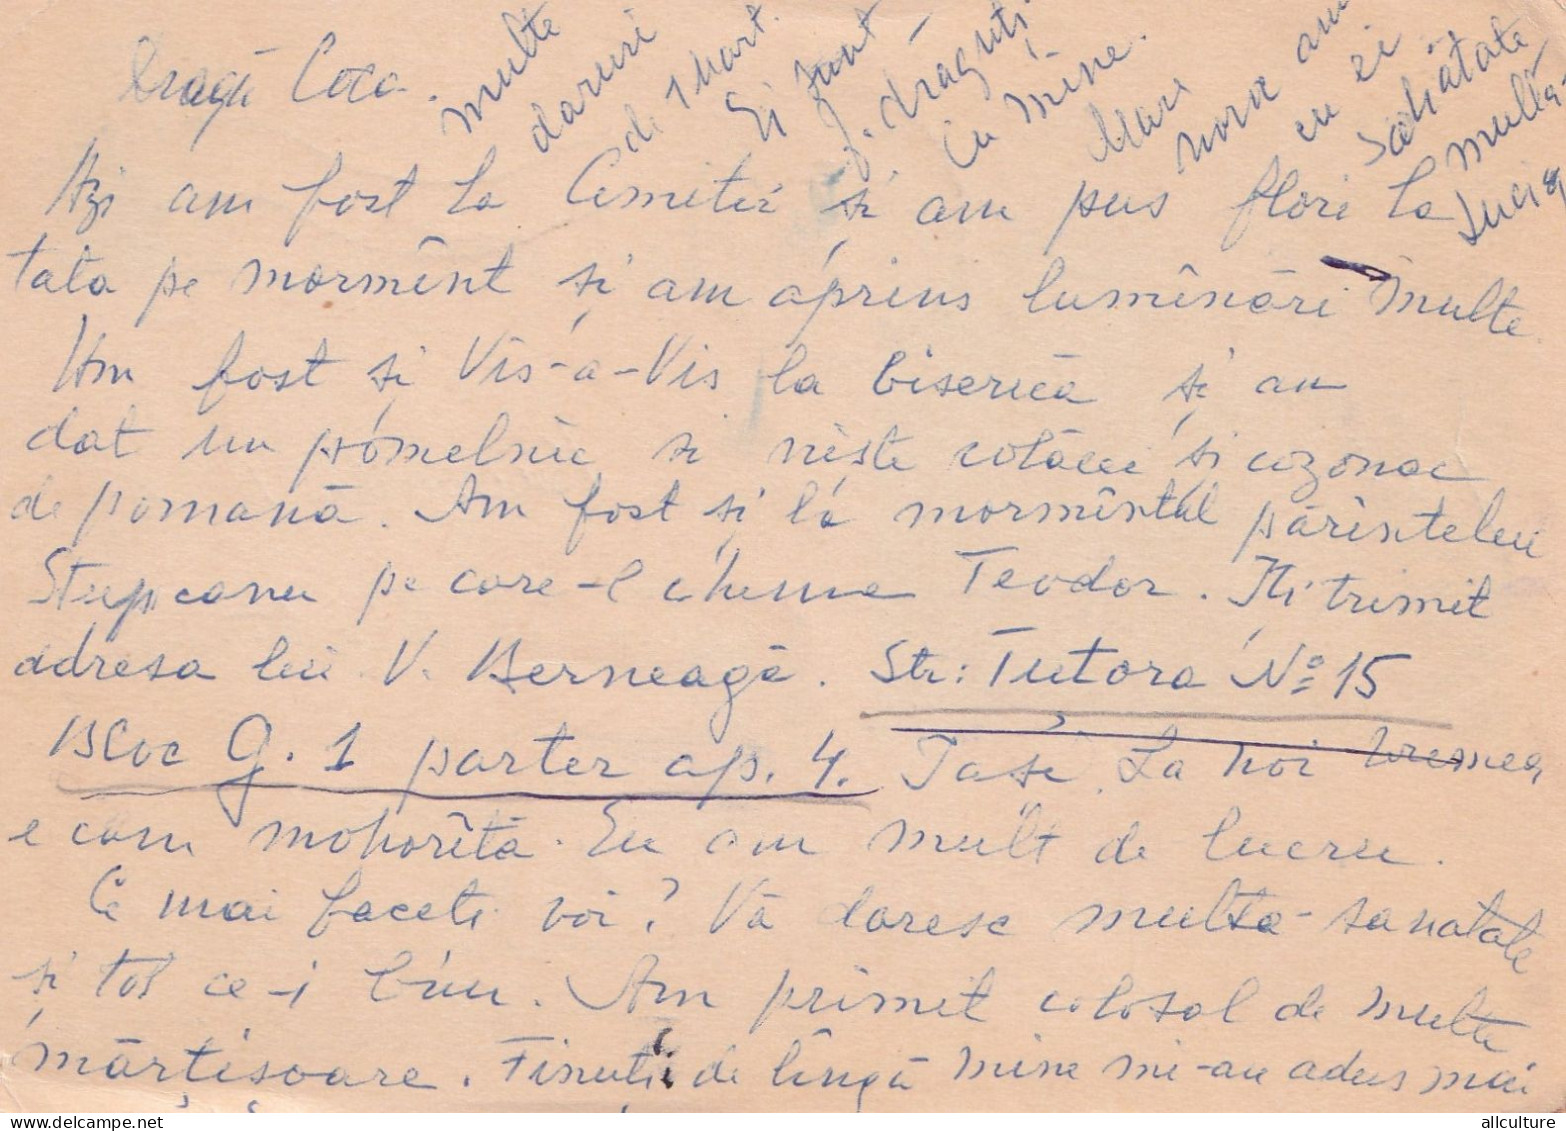 Dragă Coca.
Azi am fost la Cimitir si am pus flori la
tata pe mormînt și am aprins lumînări multe.
Am fost și Vis-a-Vis la biserică și am
dat un pomelnic si niste colăcei și cozonac
de pomană. Am fost și la mormîntul părintelui
Stupcanu pe care-l chema Teodor. Iți trimit
adresa lui V. Berneagă. Str: Țuțora No 15
Bloc G. 1 parter ap. 4. Iasi. La noi vremea
e cam mohorîtă. Eu am mult de lucru.
Ce mai faceti voi? Vă doresc multa sanatate
și tot ce-i bun. Am primit colosal de multe
mărțișoare. Finuți de lîngă mine mi-au adus mai
multe
daruri
de 1 Mart.
Ei sunt
f. drăguți
cu mine.
Mare
noroc am
cu ei
Săhătate
multă
Lucia
allculture